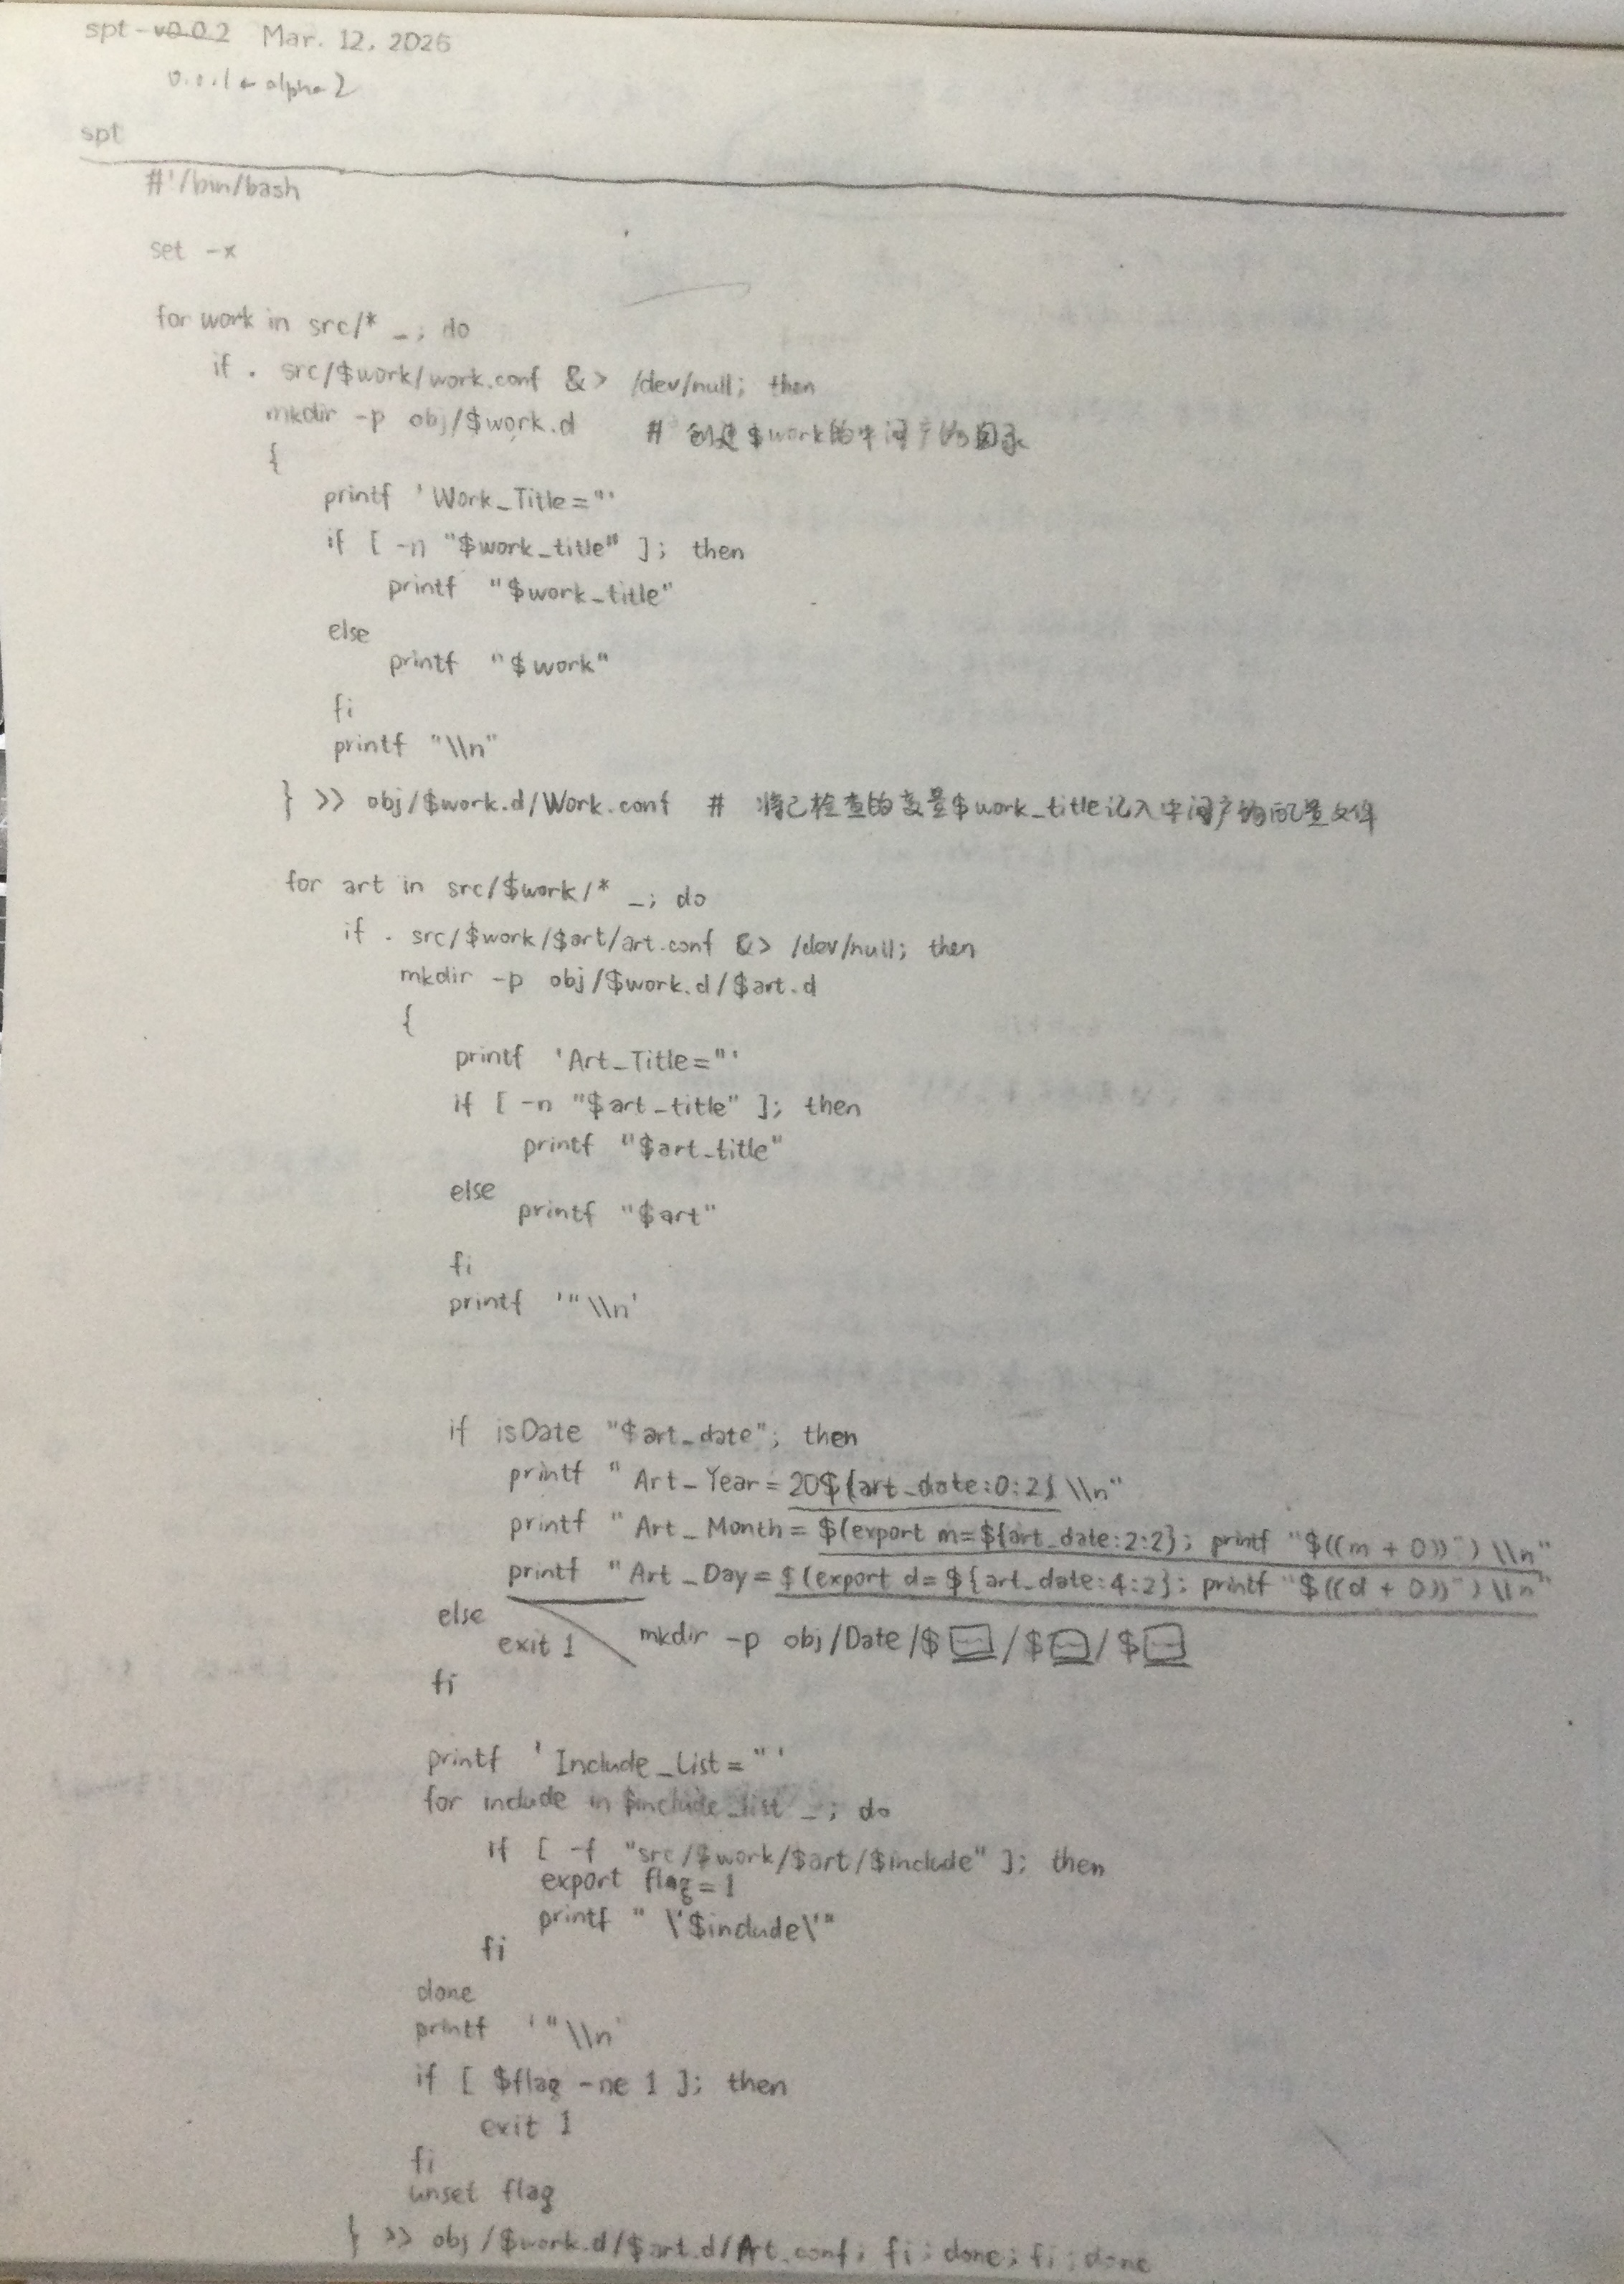 spt-v0.0.2 Mar. 12, 2026
0.0.1-alpha2
spt
#!/bin/bash
set -x
for work in src/* _; do
if . src/$work/work.conf &> /dev/null; then
mkdir -p obj/$work.d # 创建$work的中间产物目录
{
printf 'Work_Title="'
if [ -n "$work_title" ]; then
printf "$work_title"
else
printf "$work"
fi
printf "\\n"
} >> obj/$work.d/Work.conf # 将已检查的变量$work_title记入中间产物配置文件
for art in src/$work/* _; do
if . src/$work/$art/art.conf &> /dev/null; then
mkdir -p obj/$work.d/$art.d
{
printf 'Art_Title="'
if [ -n "$art_title" ]; then
printf "$art_title"
else
printf "$art"
fi
printf '"\\n'
if isDate "$art_date"; then
printf "Art_Year=20${art_date:0:2}\\n"
printf "Art_Month=$(export m=${art_date:2:2}; printf "$((m + 0))")\\n"
printf "Art_Day=$(export d=${art_date:4:2}; printf "$((d + 0))")\\n"
mkdir -p obj/Date/$ /$ /$
else
exit 1
fi
printf 'Include_List="'
for include in $include_list _; do
if [ -f "src/$work/$art/$include" ]; then
export flag=1
printf " \'$include\'"
fi
done
printf '"\\n'
if [ $flag -ne 1 ]; then
exit 1
fi
unset flag
} >> obj/$work.d/$art.d/Art.conf; fi; done; fi; done